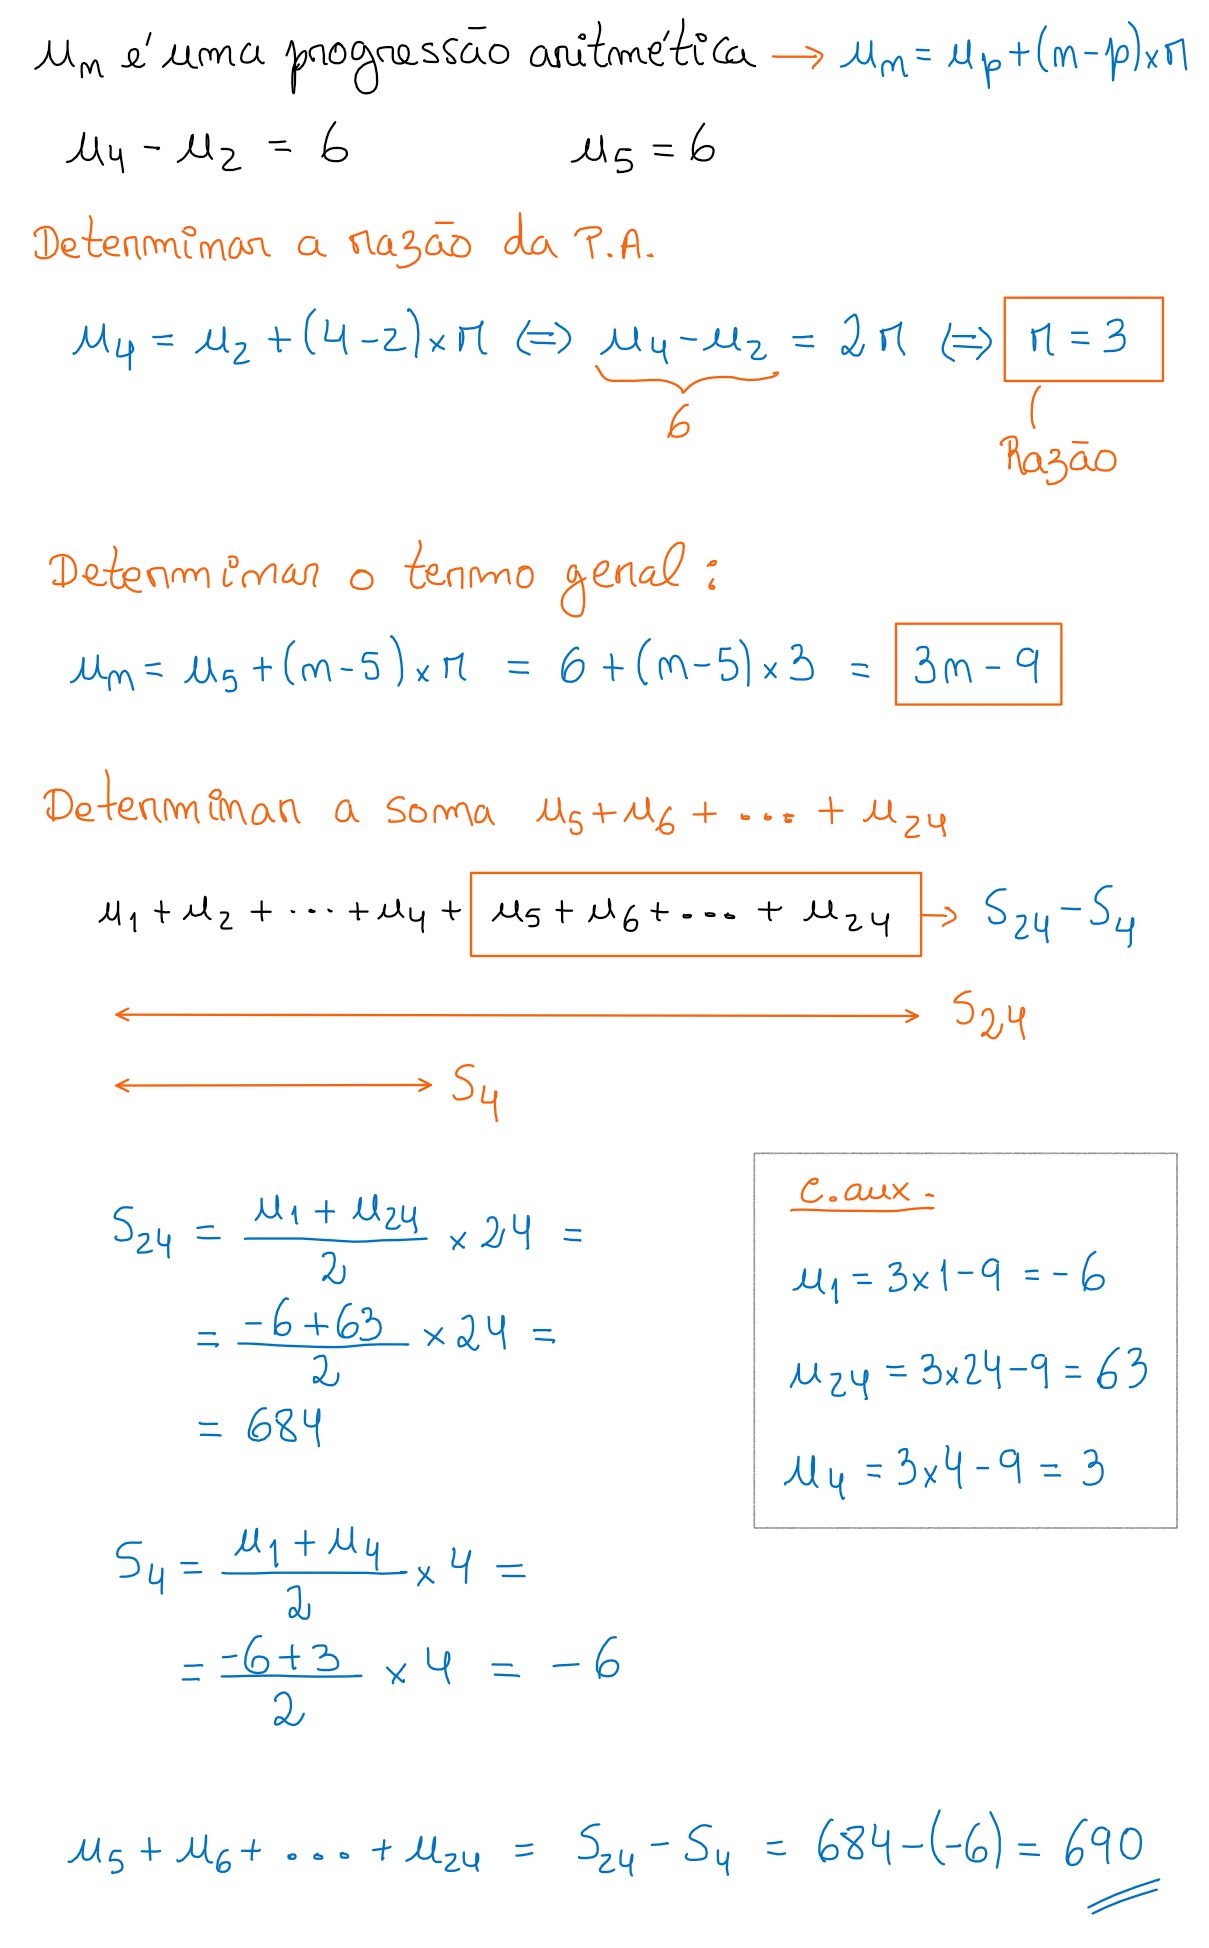 uₙ é uma progressão aritmética → uₙ = uₚ + (n-p)×r
u₄ - u₂ = 6 u₅ = 6
Determinar a razão da P.A.
u₄ = u₂ + (4-2)×r ⇔ u₄ - u₂ = 2r ⇔ r = 3
6
Razão
Determinar o termo geral :
uₙ = u₅ + (n-5)×r = 6 + (n-5)×3 = 3n - 9
Determinar a soma u₅+u₆ + ... + u₂₄
u₁ + u₂ + ... + u₄ + u₅ + u₆ + ... + u₂₄ → S₂₄ - S₄
S₂₄
S₄
S₂₄ = (u₁ + u₂₄)/2 × 24 =
= (-6+63)/2 × 24 =
= 684
c.aux.
u₁ = 3×1-9 = -6
u₂₄ = 3×24-9 = 63
u₄ = 3×4-9 = 3
S₄ = (u₁ + u₄)/2 × 4 =
= (-6+3)/2 × 4 = -6
u₅ + u₆ + ... + u₂₄ = S₂₄ - S₄ = 684-(-6) = 690